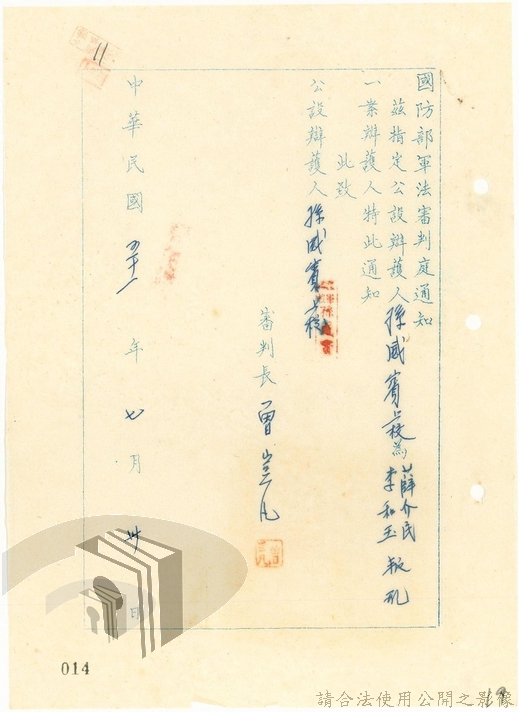 國防部軍法審判庭通知
茲指定公設辯護人孫威賓上校為薛介民李和玉叛亂
一案辯護人特此通知
此致
公設辯護人孫威賓上校
審判長曾崑凡
中華民國五十一年七月卅日
11
014
請合法使用公開之影像